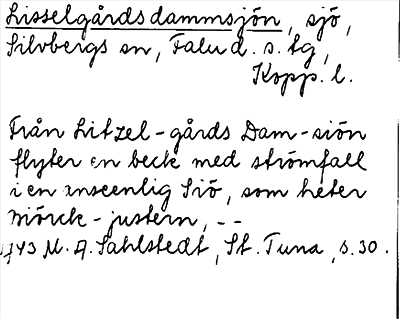 Lisselgårdsdammsjön, sjö,
Silvbergs sn, Falu d. s. lg,
Kopp. l.
Från Litzel-gårds Dam-siön
flyter en beck med strömfall
i en anseenlig Siö, som heter
Mörck-justern, --
1743 M. A. Sahlstedt, St. Tuna, s. 30.